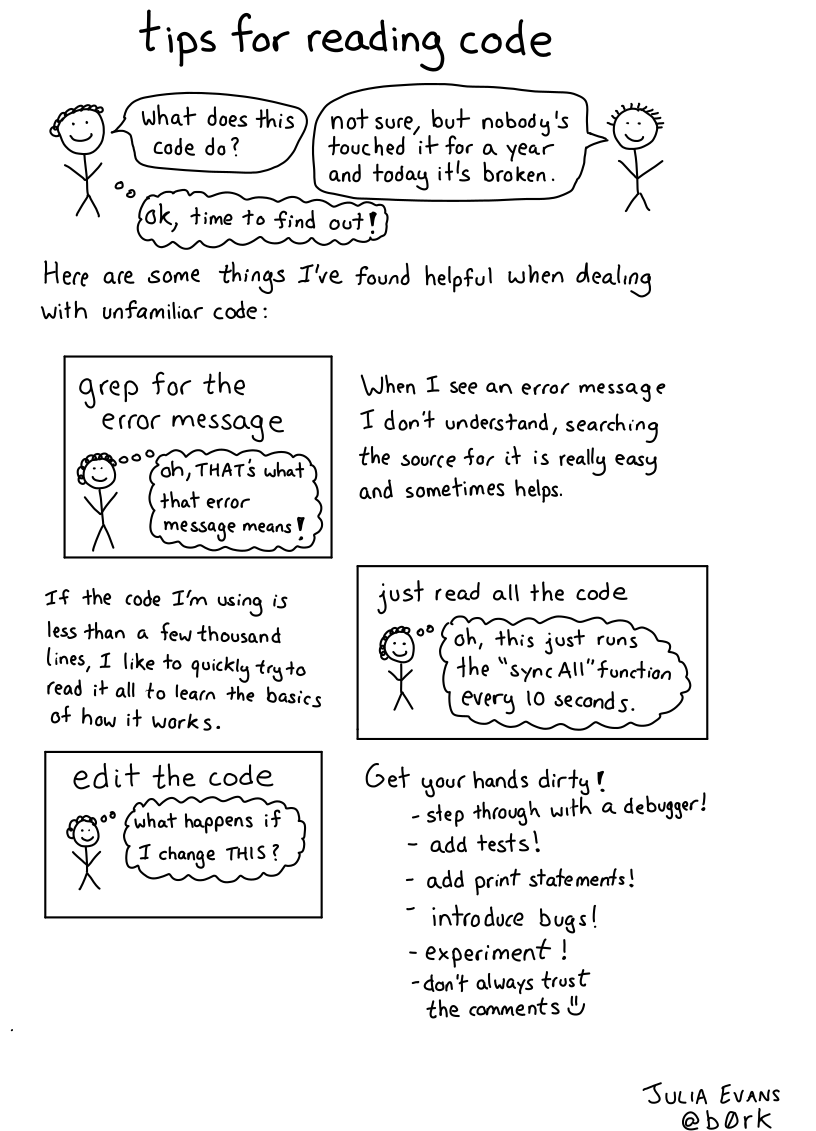 tips for reading code
what does this
code do?
not sure, but nobody's
touched it for a year
and today it's broken.
ok, time to find out!
Here are some things I've found helpful when dealing
with unfamiliar code:
grep for the
error message
oh, THAT's what
that error
message means!
When I see an error message
I don't understand, searching
the source for it is really easy
and sometimes helps.
If the code I'm using is
less than a few thousand
lines, I like to quickly try to
read it all to learn the basics
of how it works.
just read all the code
oh, this just runs
the "sync All" function
every 10 seconds.
edit the code
what happens if
I change THIS?
Get your hands dirty!
- step through with a debugger!
- add tests!
- add print statements!
- introduce bugs!
- experiment!
- don't always trust
the comments
JULIA EVANS
@b0rk